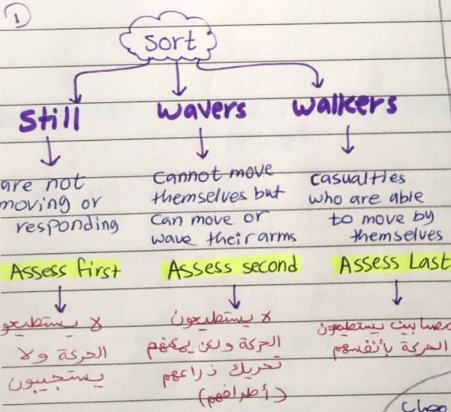 1
Sort
Still
Wavers
Walkers
are not
moving or
responding
Assess first
لا يستطيعو
الحركة ولا
يستجيبون
Cannot move
themselves but
Can move or
wave their arms
Assess second
لا يستطيعون
الحركة ولكن يمكنهم
تحريك ذراعهم
(أطرافهم)
casualties
who are able
to move by
themselves
Assess Last
مصابين يستطيعون
الحركة بأنفسهم